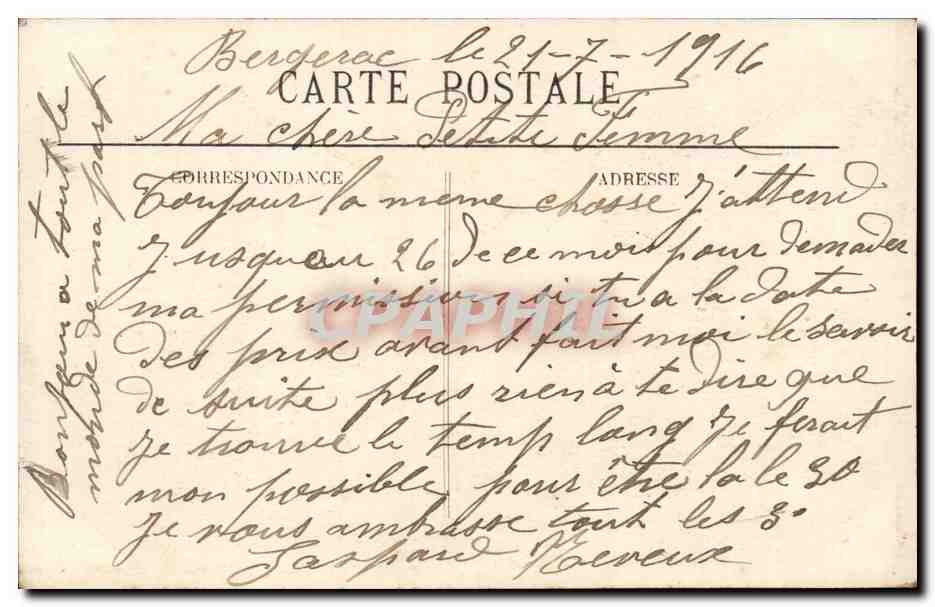 Bergerac le 21-7-1916
CARTE POSTALE
Ma chère Petite Femme
CORRESPONDANCE
ADRESSE
Toujour la meme chosse J'attend
Jusquau 26 de ce moi pour demander
ma permission si tu a la date
des prix avant fait moi le savoir
de suite plus rien à te dire que
Je trouve le temp long Je ferait
mon possible pour être la le 30
Je vous ambrasse tout les 3
Gaspard Neveux
Bonjour a tout le
monde de ma part
CPAPHIL